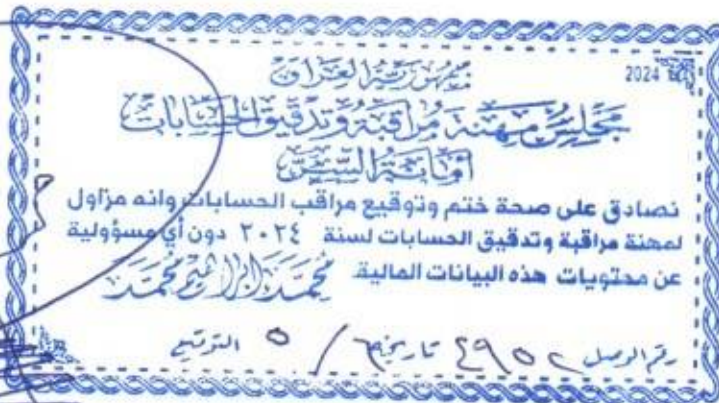 2024
جمهورية العراق
مجلس مهنة مراقبة وتدقيق الحسابات
أمانة السر
نصادق على صحة ختم وتوقيع مراقب الحسابات وانه مزاول
لمهنة مراقبة وتدقيق الحسابات لسنة ٢٠٢٤ دون أي مسؤولية
عن محتويات هذه البيانات المالية
محمد ابراهيم محمد
رقم الوصل تاريخ / ٥ التوقيع